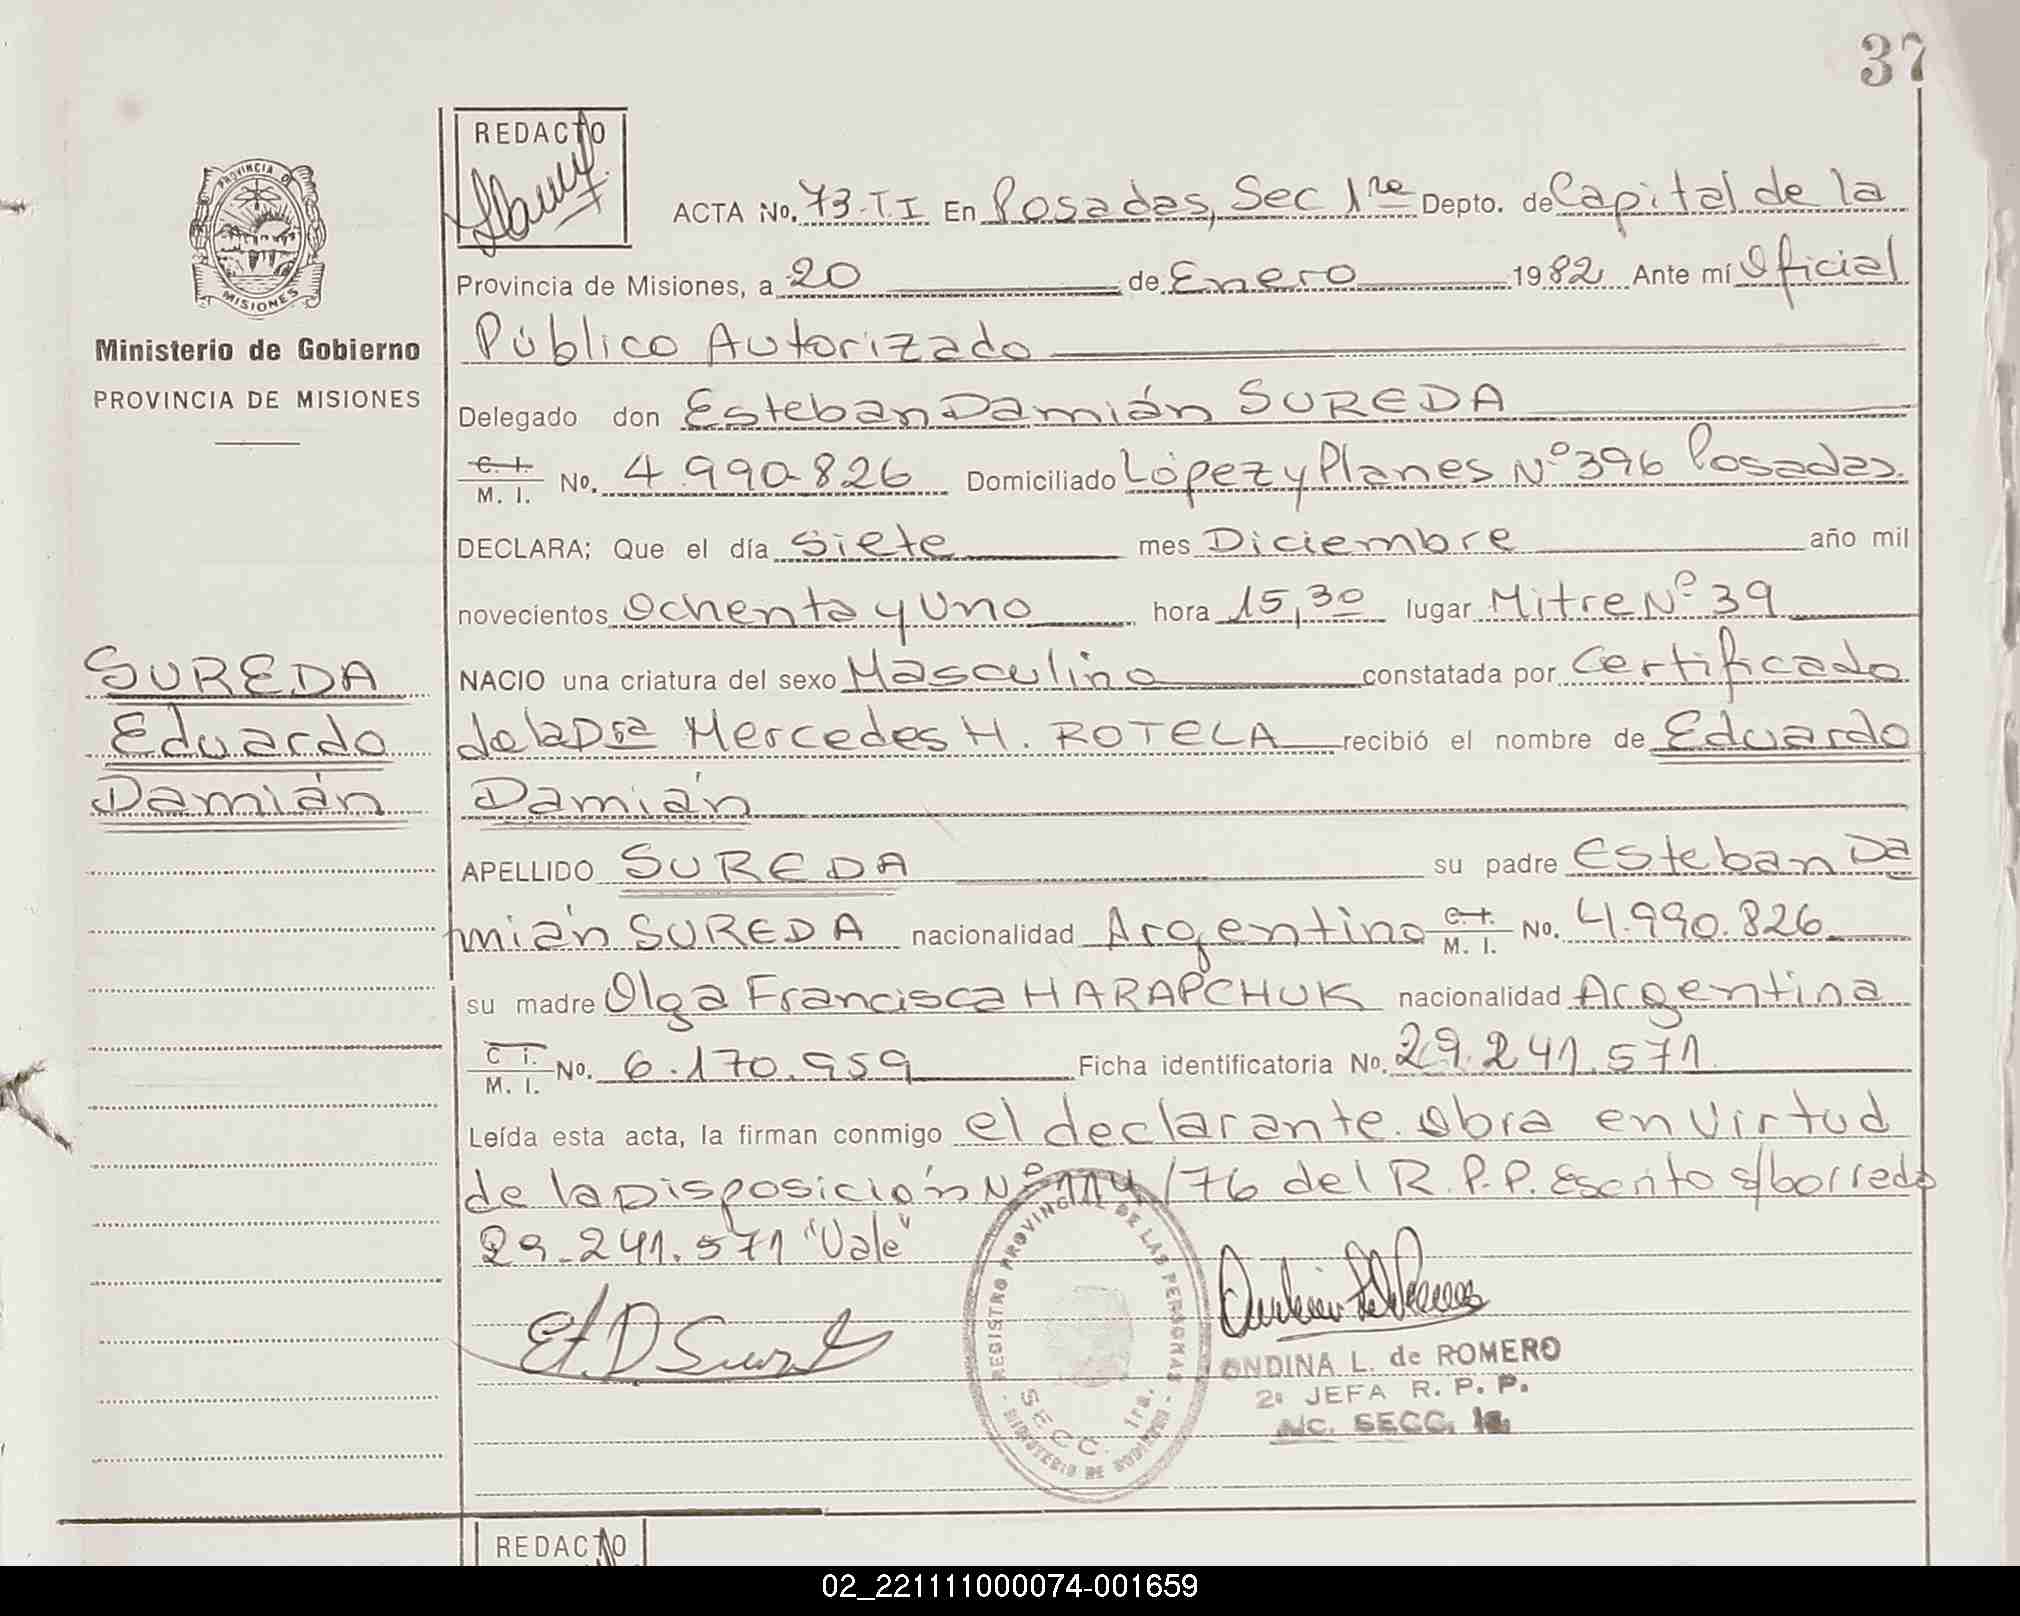 37
REDACTO
PROVINCIA D
MISIONES
Ministerio de Gobierno
PROVINCIA DE MISIONES
ACTA No. 73-T.I En Posadas, Sec 1ra Depto. de Capital de la
Provincia de Misiones, a 20 de Enero 1982 Ante mí Oficial
Público Autorizado
Delegado don Esteban Damián SUREDA
C. I. M. I. No. 4.990.826 Domiciliado López y Planes Nº 396 Posadas.
DECLARA; Que el día Siete mes Diciembre año mil
novecientos Ochenta y Uno hora 15,30 lugar Mitre Nº 39
NACIO una criatura del sexo Masculino constatada por Certificado
de la Dra Mercedes H. ROTELA recibió el nombre de Eduardo
Damián
APELLIDO SUREDA su padre Esteban Da
mián SUREDA nacionalidad Argentino C. I. M. I. No. 4.990.826
su madre Olga Francisca HARAPCHUK nacionalidad Argentina
C I. M. I. No. 6.170.959 Ficha identificatoria No. 29.241.571
Leída esta acta, la firman conmigo el declarante. Obra en Virtud
de la Disposición Nº 114/76 del R.P.P. Escrito s/borrado
29.241.571 "Vale"
SUREDA
Eduardo
Damián
REGISTRO PROVINCIAL DE LAS PERSONAS
SECC. 1ra.
MINISTERIO DE GOBIERNO
ONDINA L. de ROMERO
2ª JEFA R. P. P.
SECC. 1a
REDACTO
02_221111000074-001659